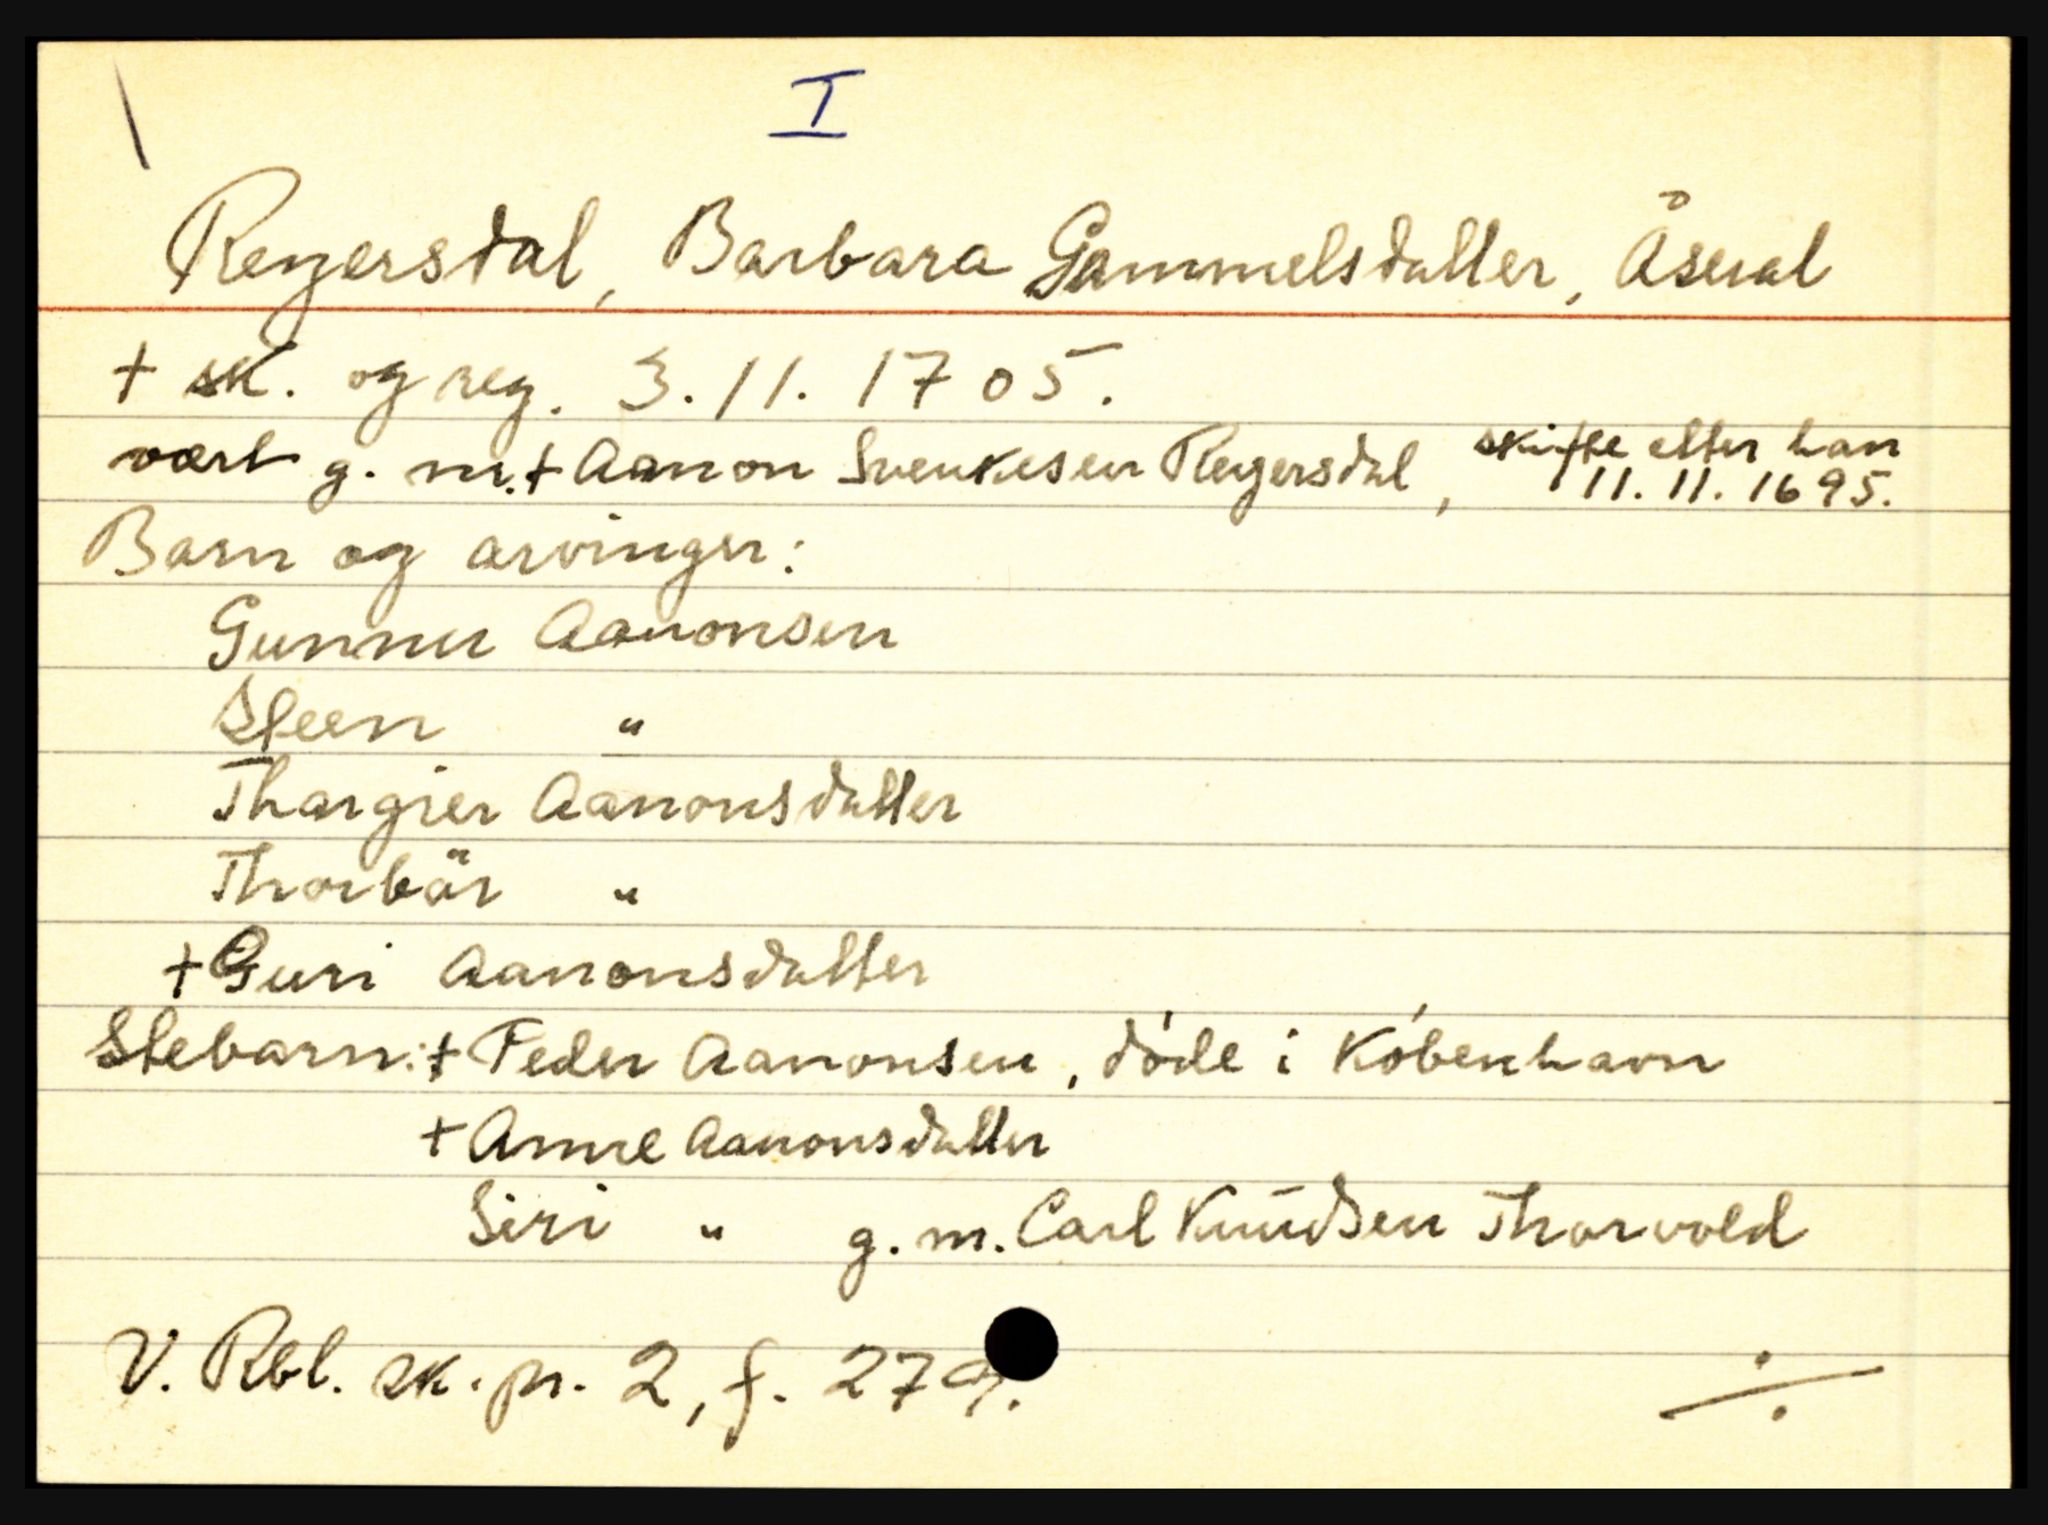 I
Reyersdal, Barbara Gammelsdatter, Åseral
+ sk. og reg. 3.11.1705.
vært g. m. + Aanon Svenkesen Reyersdal, skifte etter han 11.11.1695.
Barn og arvinger:
Gunner Aanonsen
Steen "
Thargier Aanonsdatter
Thorbär "
+ Guri Aanonsdatter
Stebarn: + Peder Aanonsen, døde i København
+ Anne Aanonsdatter
Siri " g. m. Carl Knudsen Thorvold
V. Rbl. sk. pr. 2, f. 279.